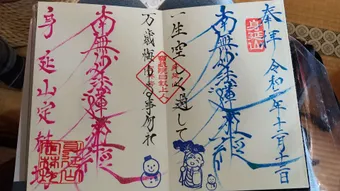 奉拝 令和 年十二月十二日
身延山
南無妙法蓮華経
一生空しく過して
万歳悔ゆる事勿れ
南無妙法蓮華経
身延山定林坊